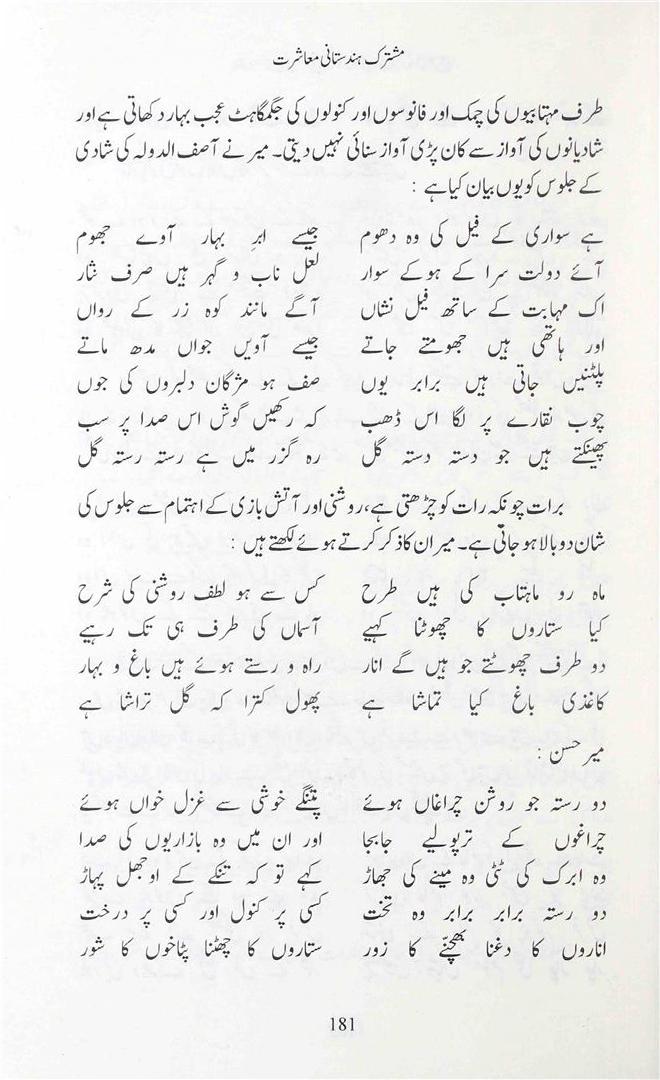 مشترک ہندستانی معاشرت
طرف مہتابیوں کی چمک اور فانوسوں اور کنولوں کی جگمگاہٹ عجب بہار دکھاتی ہے اور
شادیانوں کی آواز سے کان پڑی آواز سنائی نہیں دیتی۔ میر نے آصف الدولہ کی شادی
کے جلوس کو یوں بیان کیا ہے :
ہے سواری کے فیل کی وہ دھوم جیسے ابرِ بہار آوے جھوم
آئے دولت سرا کے ہوکے سوار لعل ناب و گہر ہیں صرف نثار
اک مہابت کے ساتھ فیل نشاں آگے مانند کوہ زر کے رواں
اور ہاتھی ہیں جھومتے جاتے جیسے آویں جواں مدھ ماتے
پلٹنیں جاتی ہیں برابر یوں صف ہو مژگان دلبروں کی جوں
چوب نقارے پر لگا اس ڈھب کہ رکھیں گوش اس صدا پر سب
پھینکتے ہیں جو دستہ دستہ گل رہ گزر میں ہے رستہ رستہ گل
برات چونکہ رات کو چڑھتی ہے، روشنی اور آتش بازی کے اہتمام سے جلوس کی
شان دوبالا ہو جاتی ہے۔ میر ان کا ذکر کرتے ہوئے لکھتے ہیں :
ماہ رو ماہتاب کی ہیں طرح کس سے ہو لطف روشنی کی شرح
کیا ستاروں کا چھوٹنا کہیے آسماں کی طرف ہی تک رہیے
دو طرف چھوٹتے جو ہیں گے انار راہ و رستے ہوئے ہیں باغ و بہار
کاغذی باغ کیا تماشا ہے پھول کترا کہ گل تراشا ہے
میر حسن :
دو رستہ جو روشن چراغاں ہوئے پتنگے خوشی سے غزل خواں ہوئے
چراغوں کے ترپولیے جابجا اور ان میں وہ بازاریوں کی صدا
وہ ابرک کی ٹٹی وہ مینے کی جھاڑ کہے تو کہ تنکے کے اوجھل پہاڑ
دو رستہ برابر برابر وہ تخت کسی پر کنول اور کسی پر درخت
اناروں کا دغنا بھچنّے کا زور ستاروں کا چھٹنا پٹاخوں کا شور
181